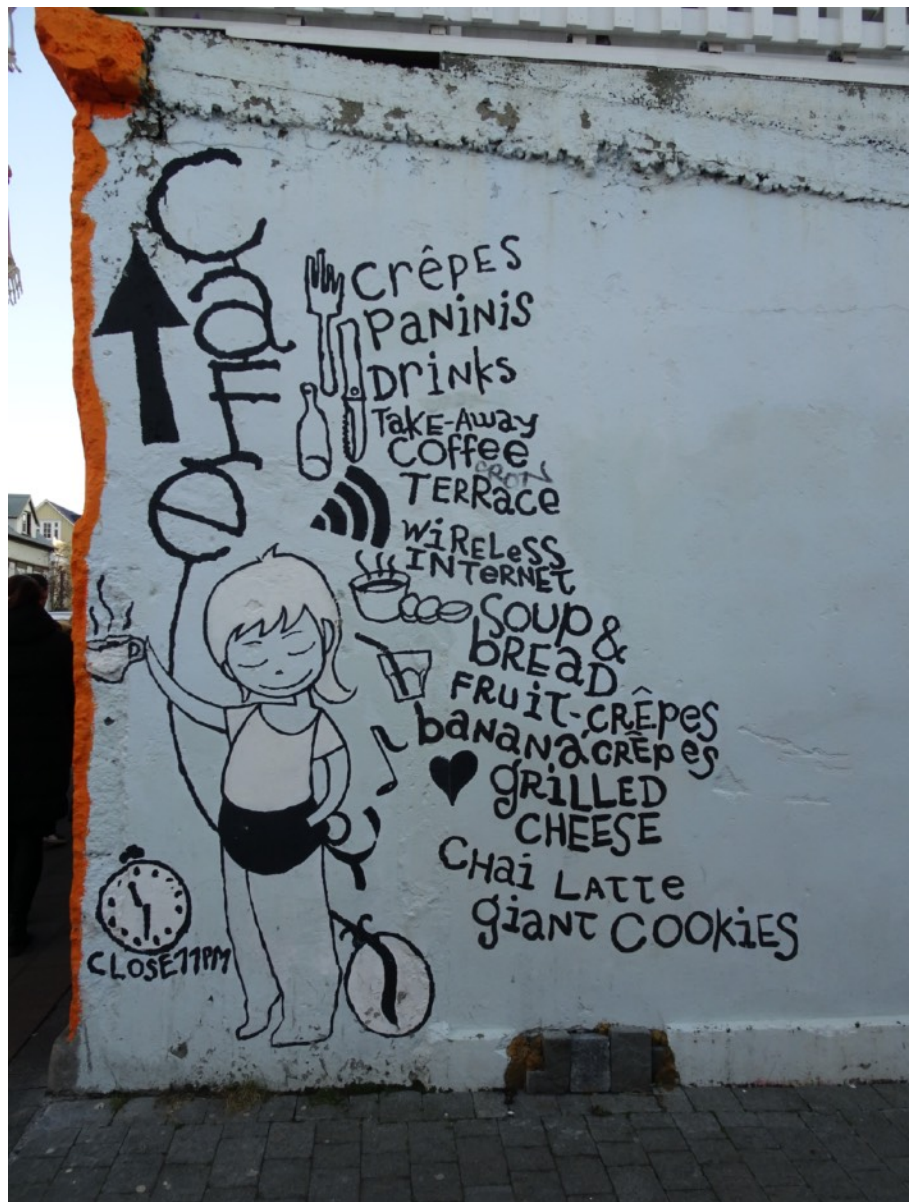 Café
CRÊPES
PANINIS
DRINKS
TAKE-AWAY
COFFEE
TERRACE
WIRELESS
INTERNET
SOUP &
BREAD
FRUIT-CRÊPES
BANANA CRÊPES
GRILLED
CHEESE
CHAI LATTE
GIANT COOKIES
CLOSE 11PM